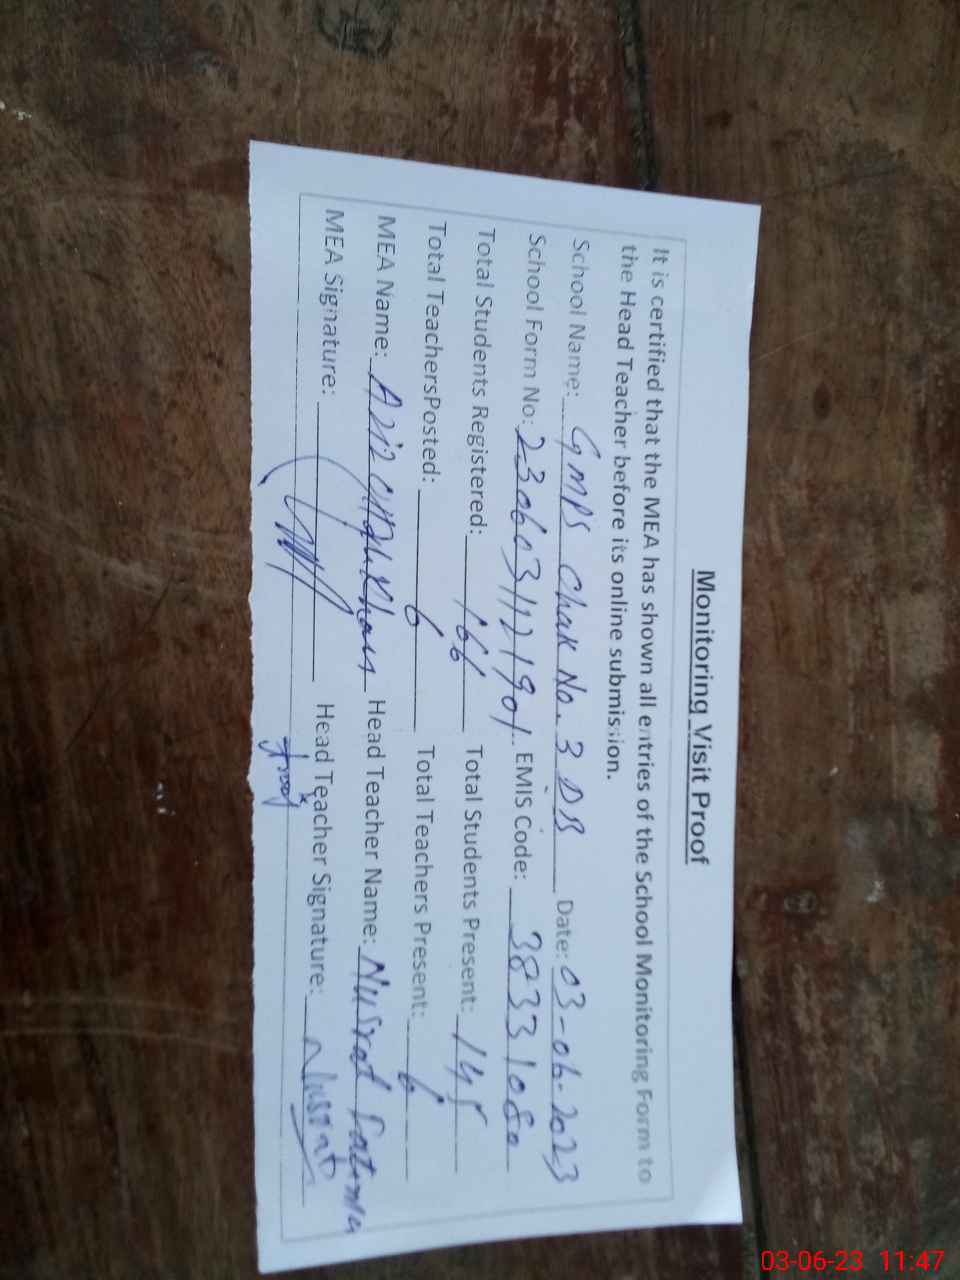 Monitoring Visit Proof
It is certified that the MEA has shown all entries of the School Monitoring Form to
the Head Teacher before its online submission.
School Name: GMPS Chak No. 3 DB Date: 03-06-2023
School Form No: 2306031121901 EMIS Code: 38331060
Total Students Registered: 166 Total Students Present: 145
Total TeachersPosted: 6 Total Teachers Present: 6
MEA Name: Khan Head Teacher Name: Nusrat Fatima
MEA Signature: Head Teacher Signature: Nusrat
03-06-23 11:47